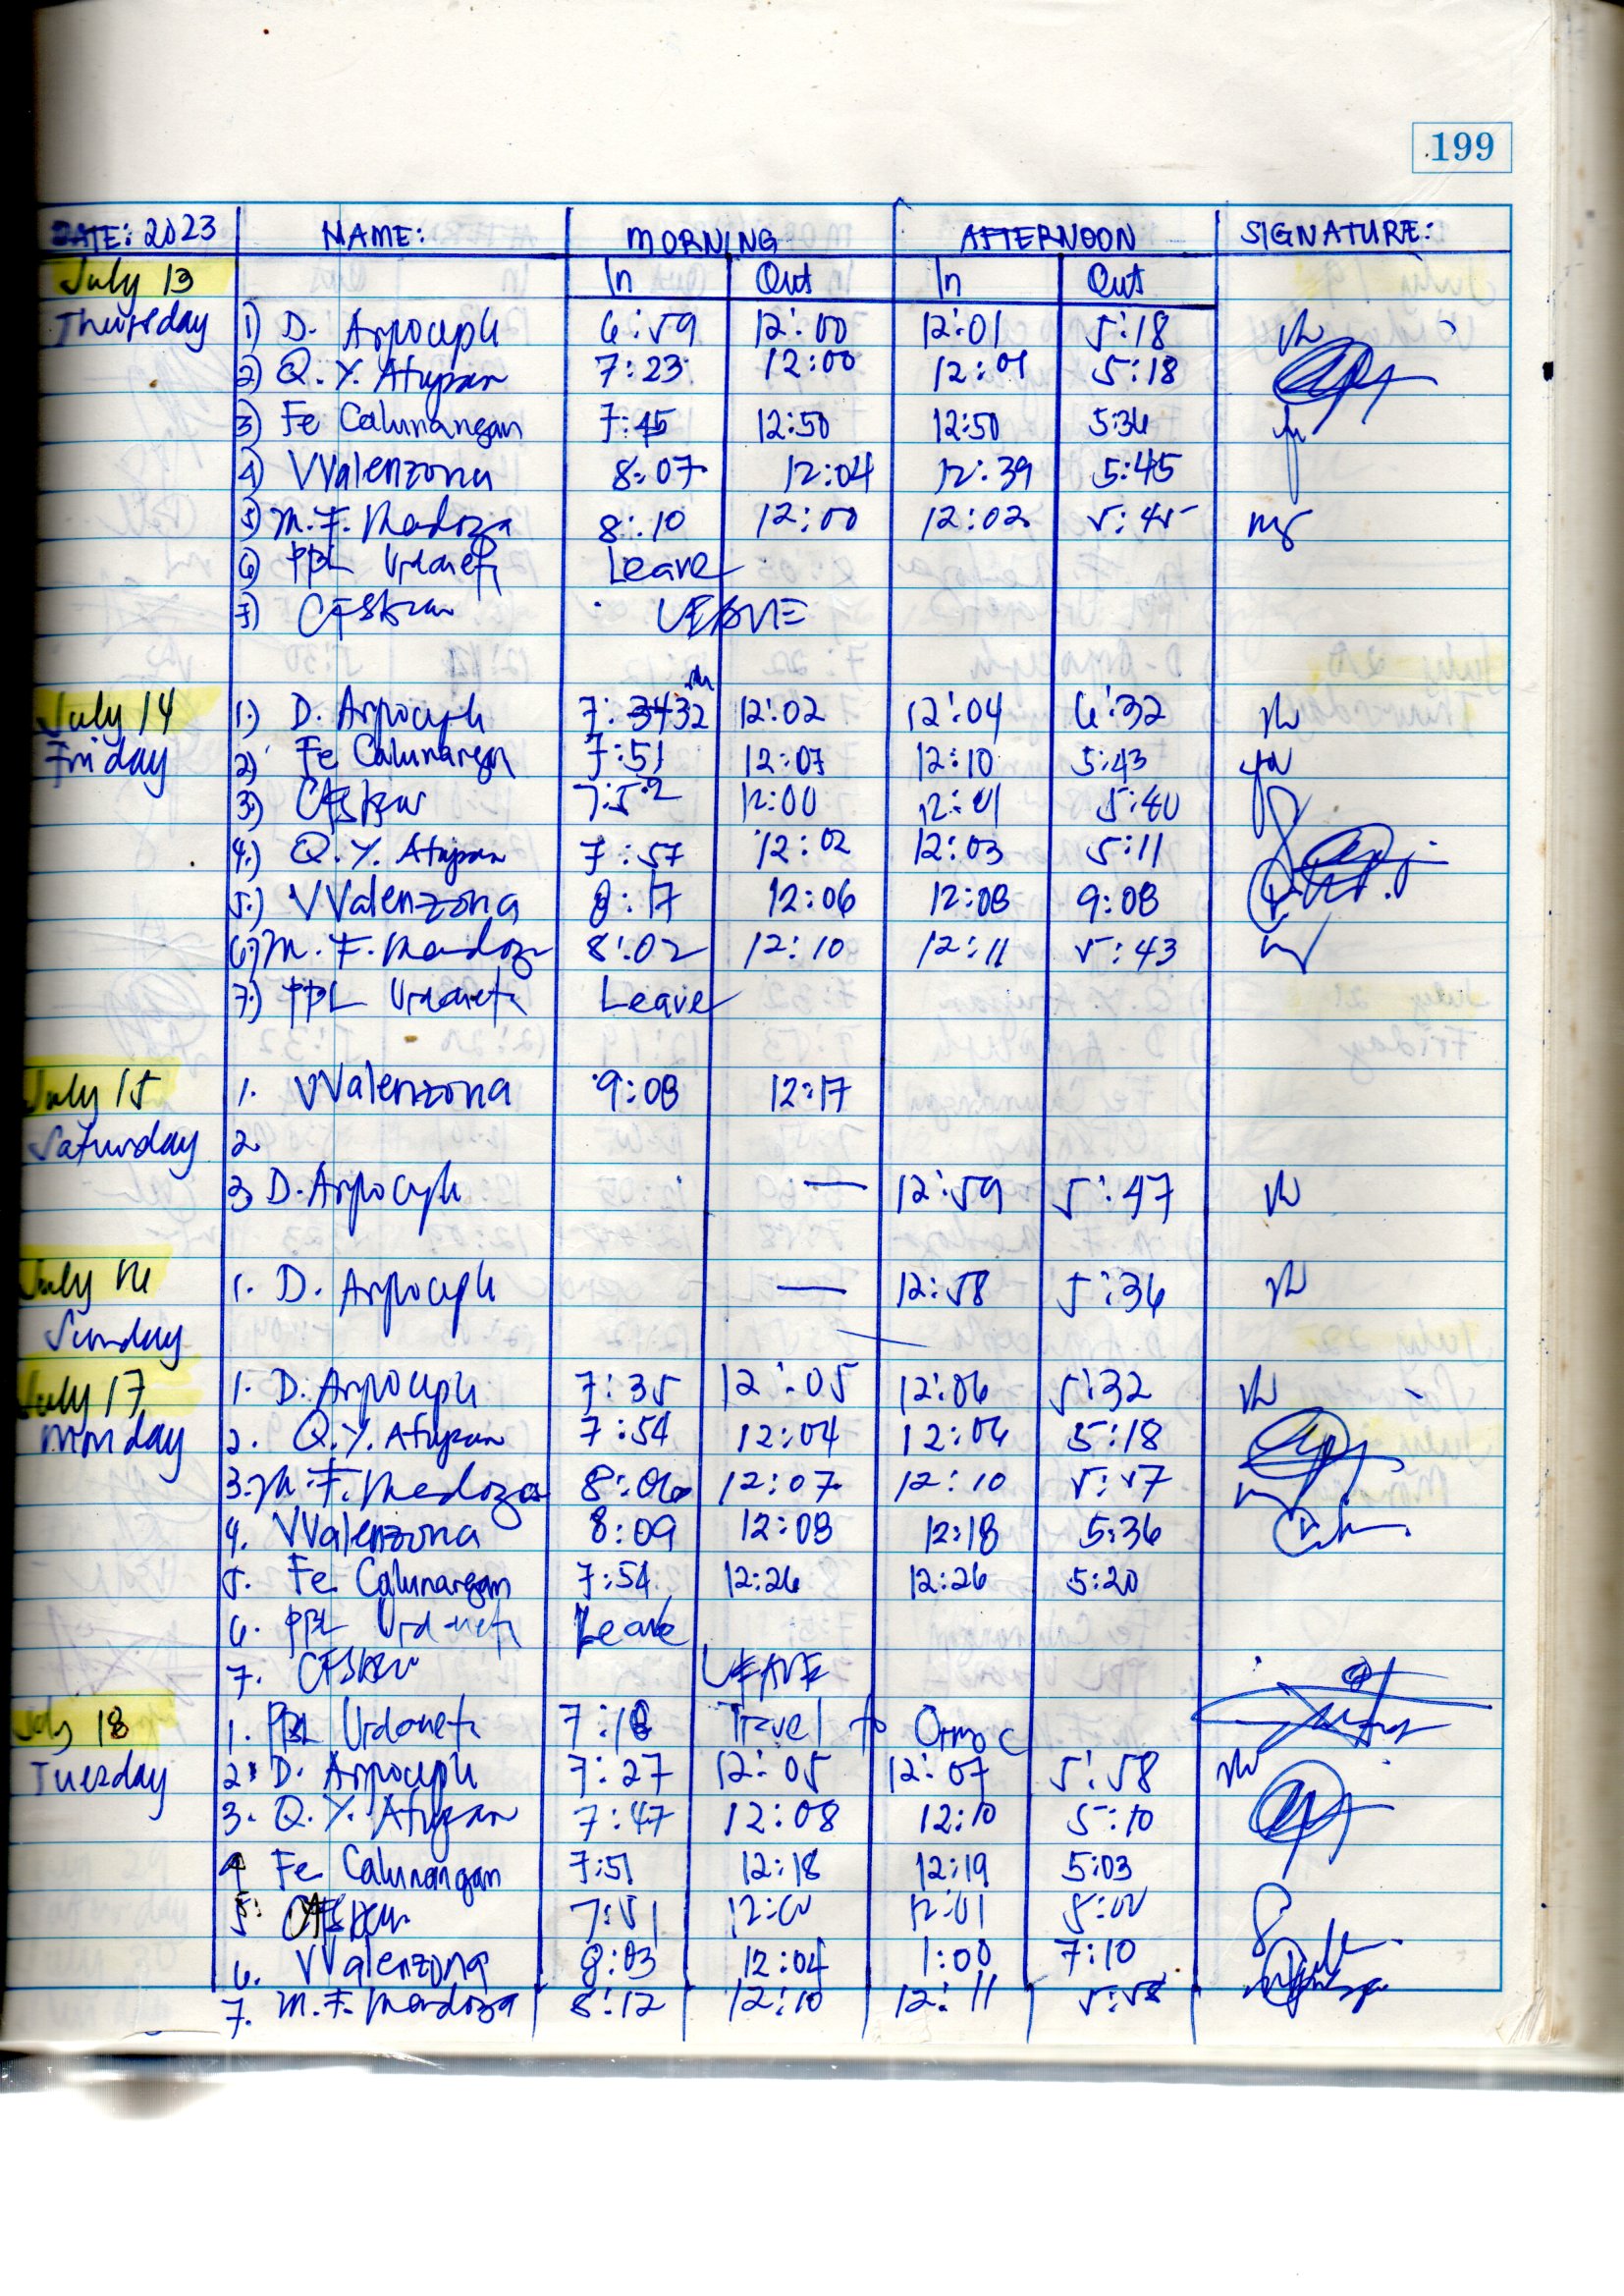 199
DATE: 2023 NAME: MORNING AFTERNOON SIGNATURE:
July 13 In Out In Out
Thursday 1) D. Arpoceph 6:59 12:00 12:01 5:18
2) Q. Y. Atupan 7:23 12:00 12:01 5:18
3) Fe Calunangan 7:45 12:50 12:50 5:36
4) VValenzona 8:07 12:04 12:39 5:45
5) M. F. Mendoza 8:10 12:00 12:02 5:45
6) PBL Urdaneta Leave
7) LEAVE
July 14 1.) D. Arpoceph 7:3432 12:02 12:04 6:32
Friday 2) Fe Calunangan 7:51 12:07 12:10 5:43
3.) 7:52 12:00 12:01 5:40
4.) Q. Y. Atupan 7:57 12:02 12:03 5:11
5.) VValenzona 8:17 12:06 12:08 9:08
6) M. F. Mendoza 8:02 12:10 12:11 5:43
7.) PBL Urdaneta Leave
July 15 1. VValenzona 9:08 12:17
Saturday 2
3 D. Arpoceph — 12:59 5:47
July 16 1. D. Arpoceph — 12:58 5:36
Sunday
July 17 1. D. Arpoceph 7:35 12:05 12:06 5:32
Monday 2. Q.Y. Atupan 7:54 12:04 12:06 5:18
3. M. F. Mendoza 8:06 12:07 12:10 5:57
4. VValenzona 8:09 12:08 12:18 5:36
5. Fe Calunangan 7:54 12:26 12:26 5:20
6. PBL Urdaneta Leave
7. LEAVE
July 18 1. PBL Urdaneta 7:18 Travel to Ormoc
Tuesday 2. D. Arpoceph 7:27 12:05 12:07 5:58
3. Q. Y. Atupan 7:47 12:08 12:10 5:10
4 Fe Calunangan 7:51 12:18 12:19 5:03
5. 7:51 12:00 12:01 5:00
6. VValenzona 8:03 12:04 1:00 7:10
7. M. F. Mendoza 8:12 12:10 12:11 5:58